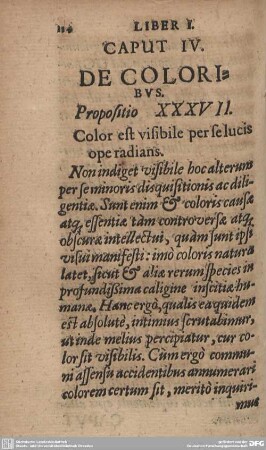 114 LIBER I.
CAPUT IV.
DE COLORI=
BVS.
Propositio XXXVII.
Color est visibile per se lucis
ope radians.
Non indiget visibile hoc alterum
per se minoris disquisitionis ac dili-
gentiæ. Sunt enim & coloris causæ
atq; essentiæ tàm controversæ atq;
obscuræ intellectui, quàm sunt ipsi
visui manifesti: imò coloris natura
latet, sicut & aliæ rerum species in
profundissima caligine inscitiæ hu-
manæ. Hanc ergò, qualis ea quidem
est absolutè, intimius scrutabimur,
ut inde melius percipiatur, cur co-
lor sit visibilis. Cùm ergò commu-
ni assensu accidentibus annumerari
colorem certum sit, meritò inquiri-
mus